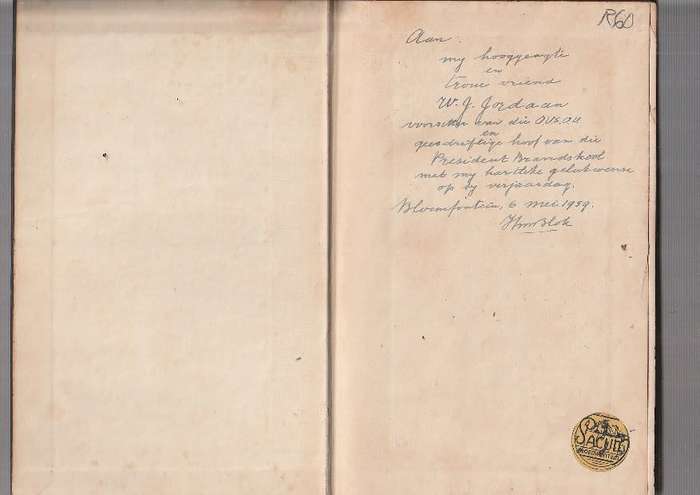 R60
Aan:
my hooggeagte
en
troue vriend
W. J. Jordaan
voorsitter van die OVSOU
en
geesdriftige hoof van die
President Brandskool
met my hartlike gelukwense
op sy verjaardag.
Bloemfontein, 6 Mei 1959.
Blok
SACUM